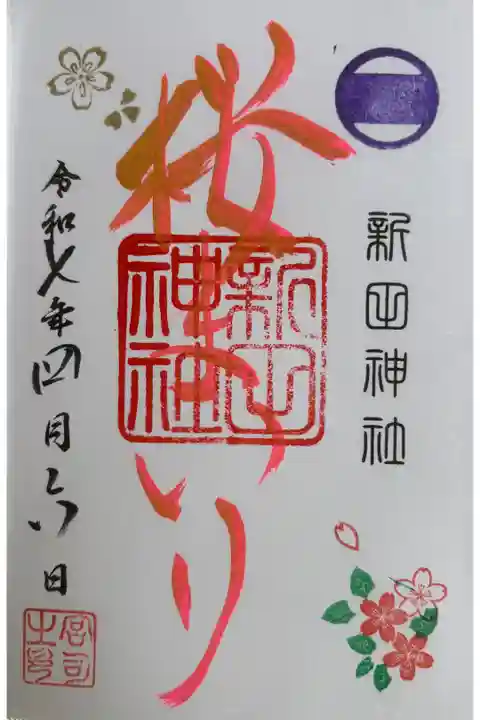 新田神社
桜まいり
新田
神社
令和七年四月六日
宮司
之印